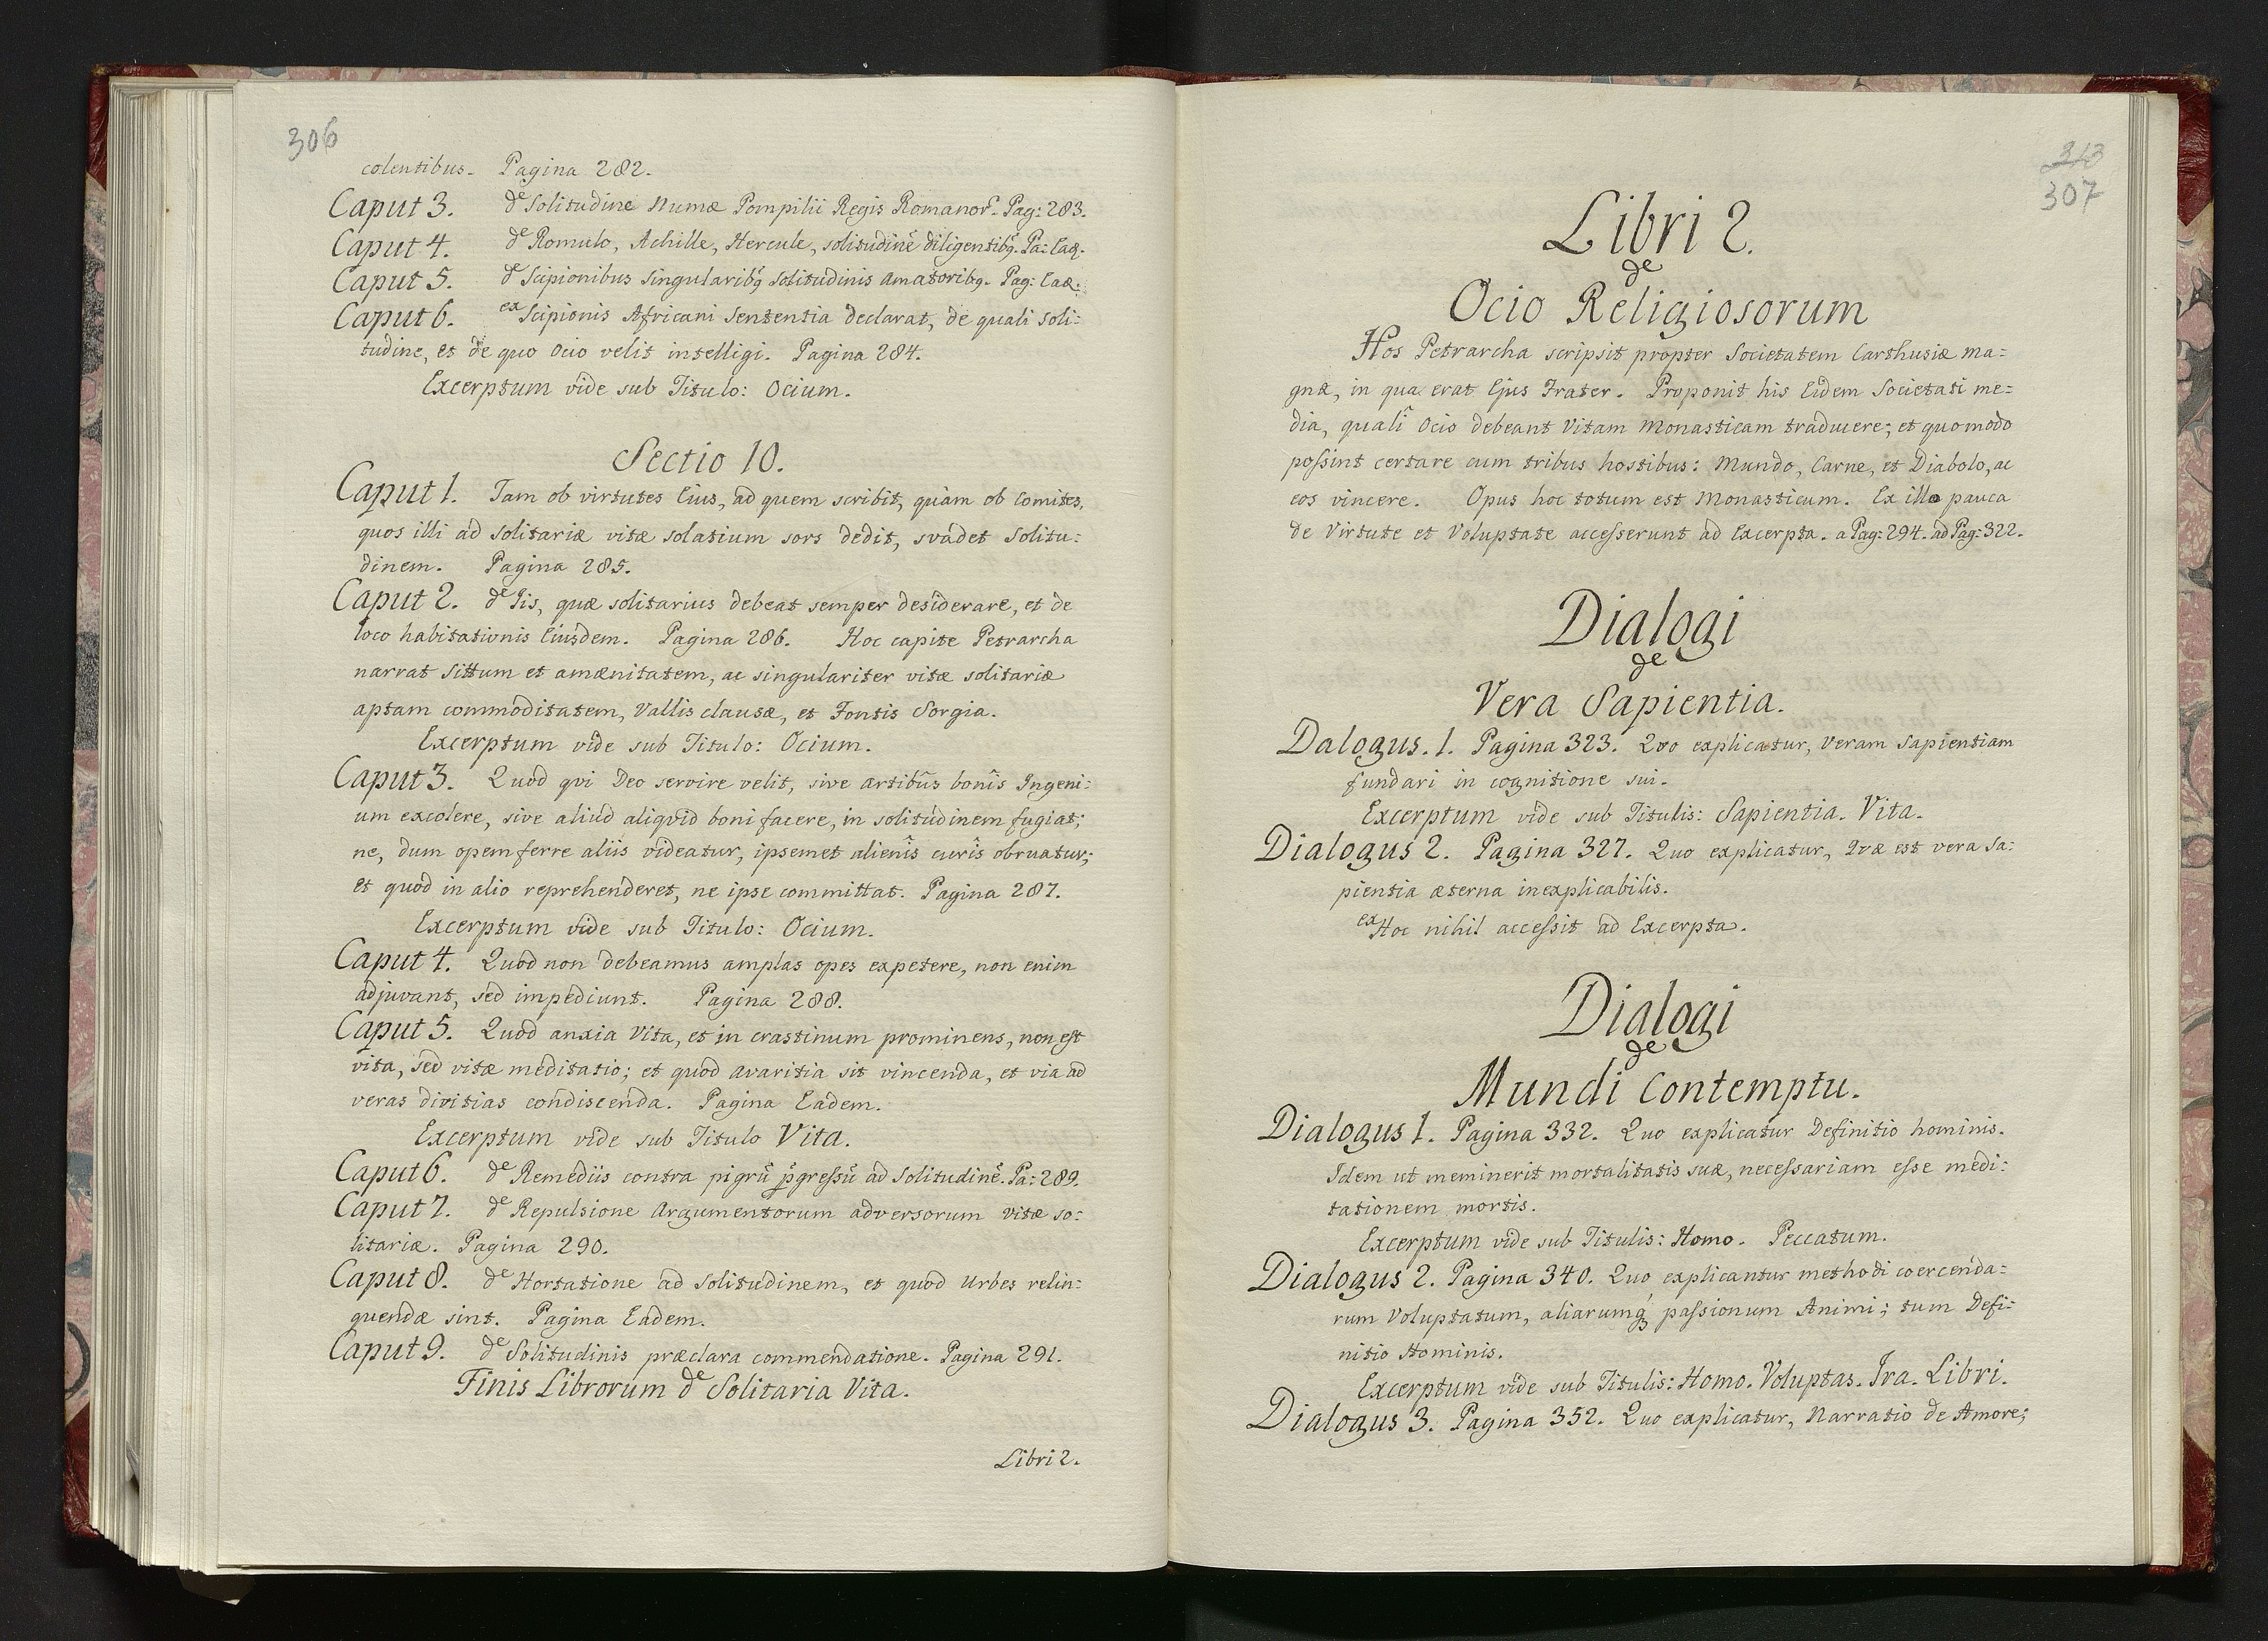 306
colentibus. Pagina 282.
Caput 3. de Solitudine Numæ Pompilii Regis Romanor. Pag: 283.
Caput 4. de Romulo, Achille, Hercule, solitudinē diligentibq. Pa: Ead.
Caput 5. de Scipionibus singularibq solitudinis amatoribq. Pag: Ead.
Caput 6. ex Scipionis Africani Sententia declarat, de quali soli:
tudine, et de quo Ocio velit intelligi. Pagina 284.
Excerptum vide sub Titulo: Ocium.
Sectio 10.
Caput 1. Tam ob virtutes Eius, ad quem scribit, quàm ob Comites,
quos illi ad solitariæ vitæ solatium sors dedit, svadet Solitu:
dinem. Pagina 285.
Caput 2. de Iis, quæ solitarius debeat semper desiderare, et de
loco habitationis Eiusdem. Pagina 286. Hoc capite Petrarcha
narrat sittum et amænitatem, ac singulariter vitæ solitariæ
aptam commoditatem, Vallis clausæ, et Fontis Sorgia.
Excerptum vide sub Titulo: Ocium.
Caput 3. Quod qvi Deo servire velit, sive artibûs bonîs Ingeni:
um excolere, sive aliud aliqvid boni facere, in solitudinem fugiat;
ne, dum opem ferre aliis videatur, ipsemet alienîs curîs obruatur;
et quod in alio reprehenderet, ne ipse committat. Pagina 287.
Excerptum vide sub Titulo: Ocium.
Caput 4. Quod non debeamus amplas opes expetere, non enim
adjuvant, sed impediunt. Pagina 288.
Caput 5. Quod anxia Vita, et in crastinum prominens, non est
vita, sed vitæ meditatio; et quod avaritia sit vincenda, et via ad
veras divitias condiscenda. Pagina Eadem.
Excerptum vide sub Titulo Vita.
Caput 6. de Remediis contra pigrū pgressū ad Solitudinē. Pa: 289.
Caput 7. de Repulsione Argumentorum adversorum vitæ so:
litariæ. Pagina 290.
Caput 8. de Hortatione ad Solitudinem, et quod Urbes relin:
quendæ sint. Pagina Eadem.
Caput 9. de Solitudinis præclara commendatione. Pagina 291.
Finis Librorum de Solitaria Vita.
Libri 2.
313
307
Libri 2.
de
Ocio Religiosorum
Hos Petrarcha scripsit propter Societatem Carthusiæ ma=
gnæ, in qua erat Ejus Frater. Proponit his Eidem Societati me=
dia, qualî Ocio debeant Vitam Monasticam traducere; et quomodo
possint certare cum tribus hostibus: Mundo, Carne, et Diabolo, ac
eos vincere. Opus hoc totum est Monasticum. Ex illo pauca
de Virtute et Voluptate accesserunt ad Excerpta. a Pag: 294. ad Pag: 322.
Dialogi
de
Vera Sapientia.
Dalogus. 1. Pagina 323. Qvo explicatur, Veram Sapientiam
fundari in cognitione sui.
Excerptum vide sub Titulis: Sapientia. Vita.
Dialogus 2. Pagina 327. Quo explicatur, Qvæ est vera Sa:
pientia æterna inexplicabilis.
ex Hoc nihil accessit ad Excerpta.
Dialogi
de
Mundi Contemptu.
Dialogus 1. Pagina 332. Quo explicatur Definitio hominis.
Idem ut meminerit mortalitatis suæ, necessariam esse medi:
tationem mortis.
Excerptum vide sub Titulis: Homo. Peccatum.
Dialogus 2. Pagina 340. Quo explicantur methodi coercenda=
rum Voluptatum, aliarumq passionum Animi; tum Defi:
nitio Hominis.
Excerptum vide sub Titulis: Homo. Voluptas. Ira. Libri.
Dialogus 3. Pagina 352. Quo explicatur, Narratio de Amore;